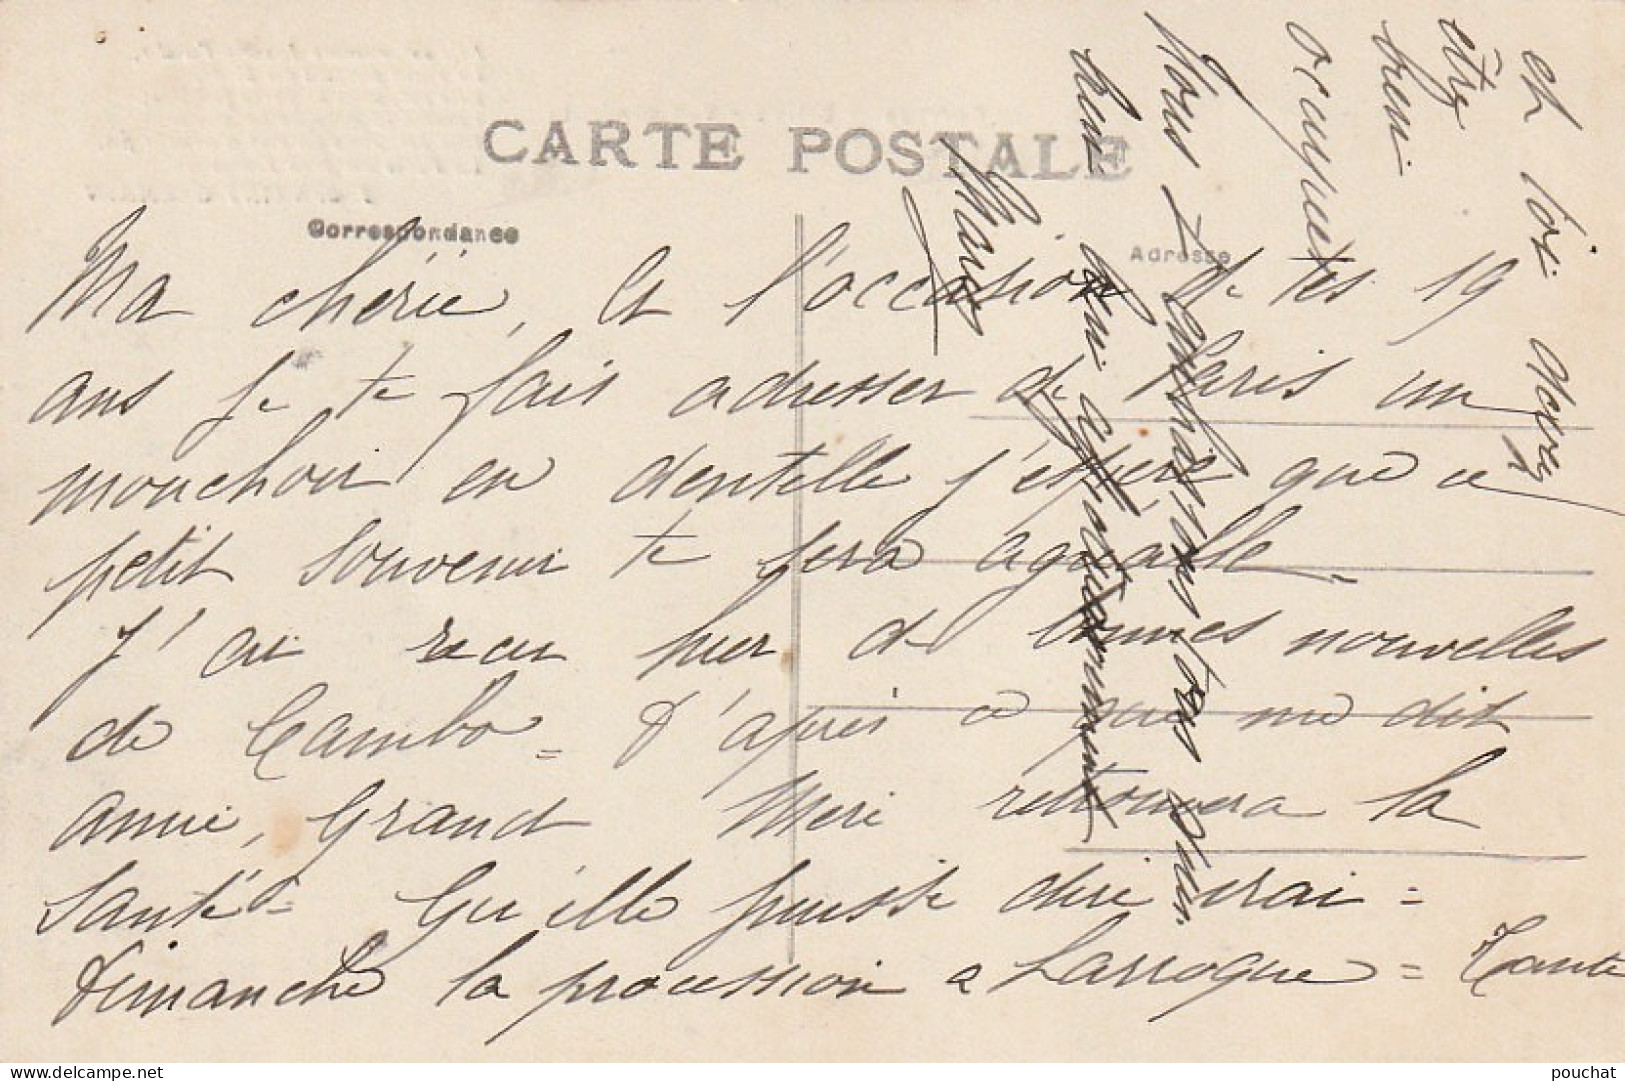 CARTE POSTALE
Correspondance
Adresse
Ma chérie, A l'occasion de tes 19
ans je te fais adresser de Paris un
mouchoir en dentelle j'espère que ce
petit souvenir te sera agréable.
J'ai recu hier de bonnes nouvelles
de Cambo = D'après ce que me dit
annie, Grand Mère retrouvera la
santé = Qu'elle puisse dire vrai =
Dimanche la procession a Larroque = Tante
et toi devez
être
bien
occupées
Nous t'embrassons tous
bien affectueusement
Marie
www.delcampe.net
pouchat